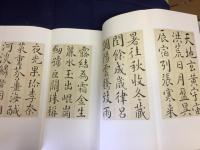 天地玄黄宇宙
洪荒日月盈昃
辰宿列張寒来
暑往秋収冬蔵
閏餘成歳律呂
調陽雲騰致雨
露結為霜金生
麗水玉出崑岡
劒號巨闕珠稱
夜光果珍李柰
菜重芥薑海醎
河淡鱗